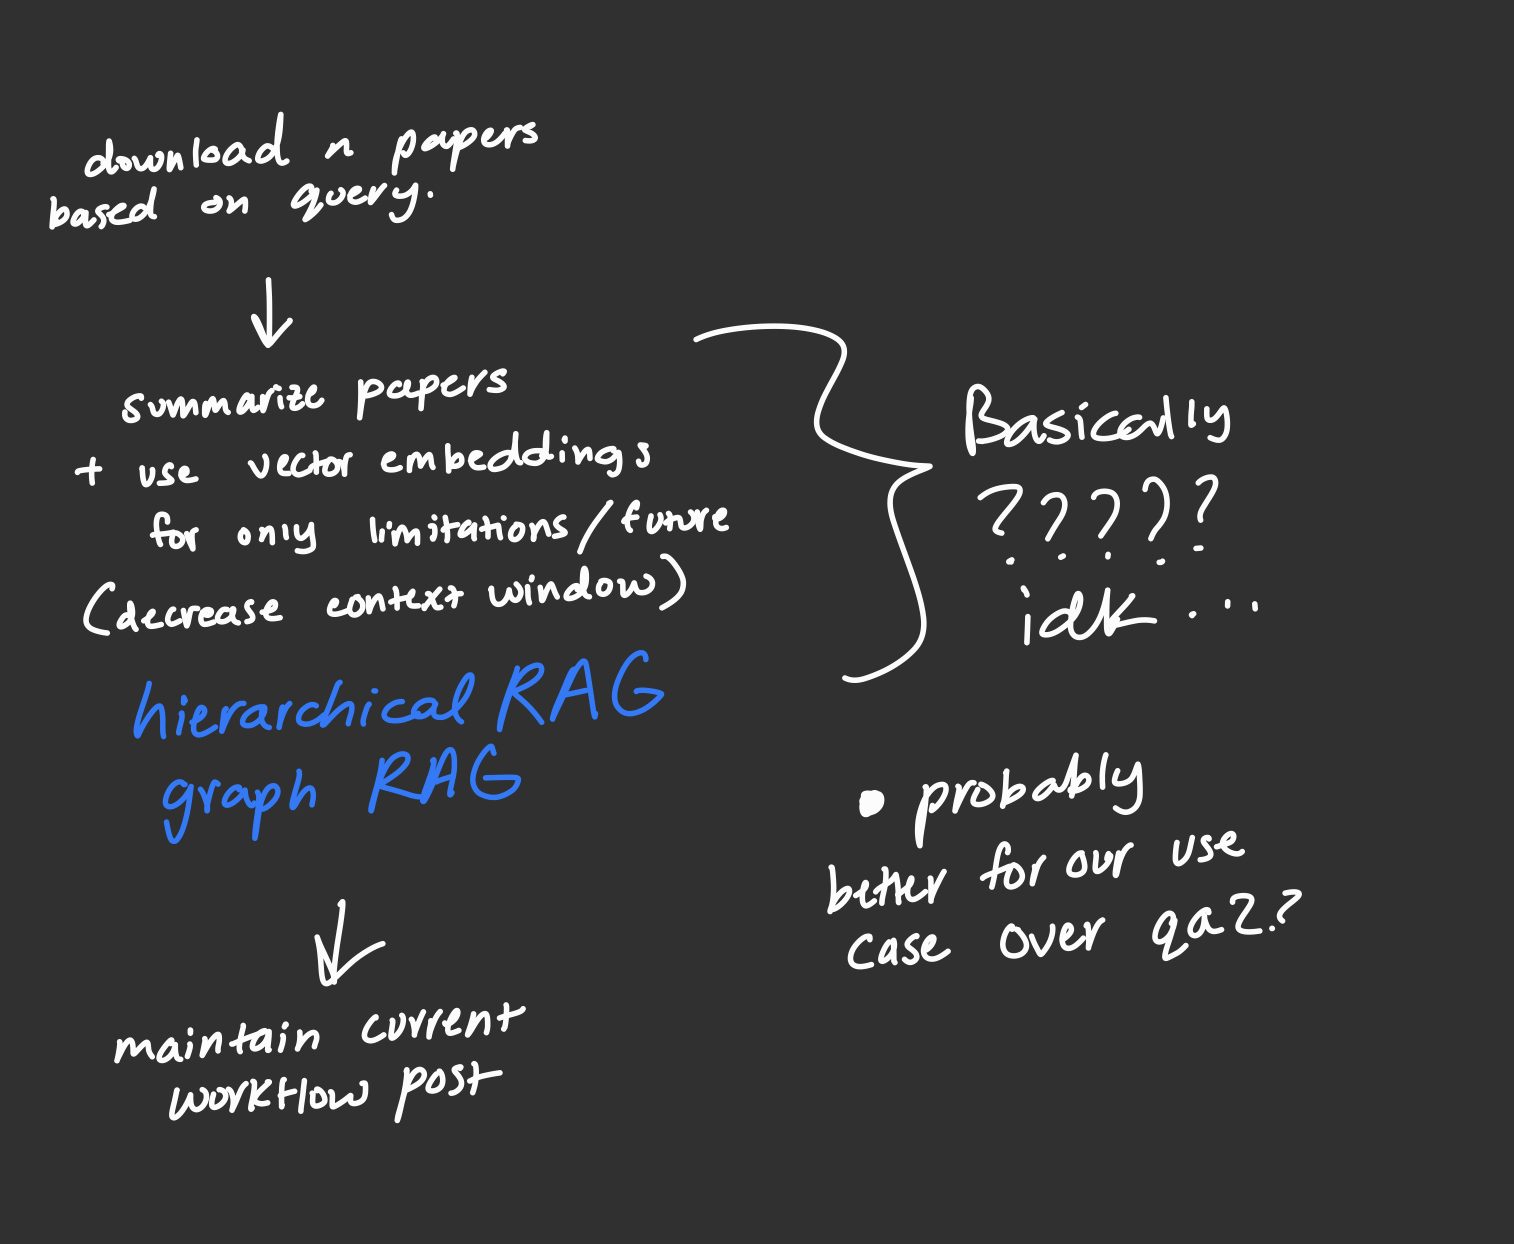 download n papers
based on query.
summarize papers
+ use vector embeddings
for only limitations/future
(decrease context window)
hierarchical RAG
graph RAG
maintain current
workflow post
Basically
?????
idk...
• probably
better for our use
case over qa2.?